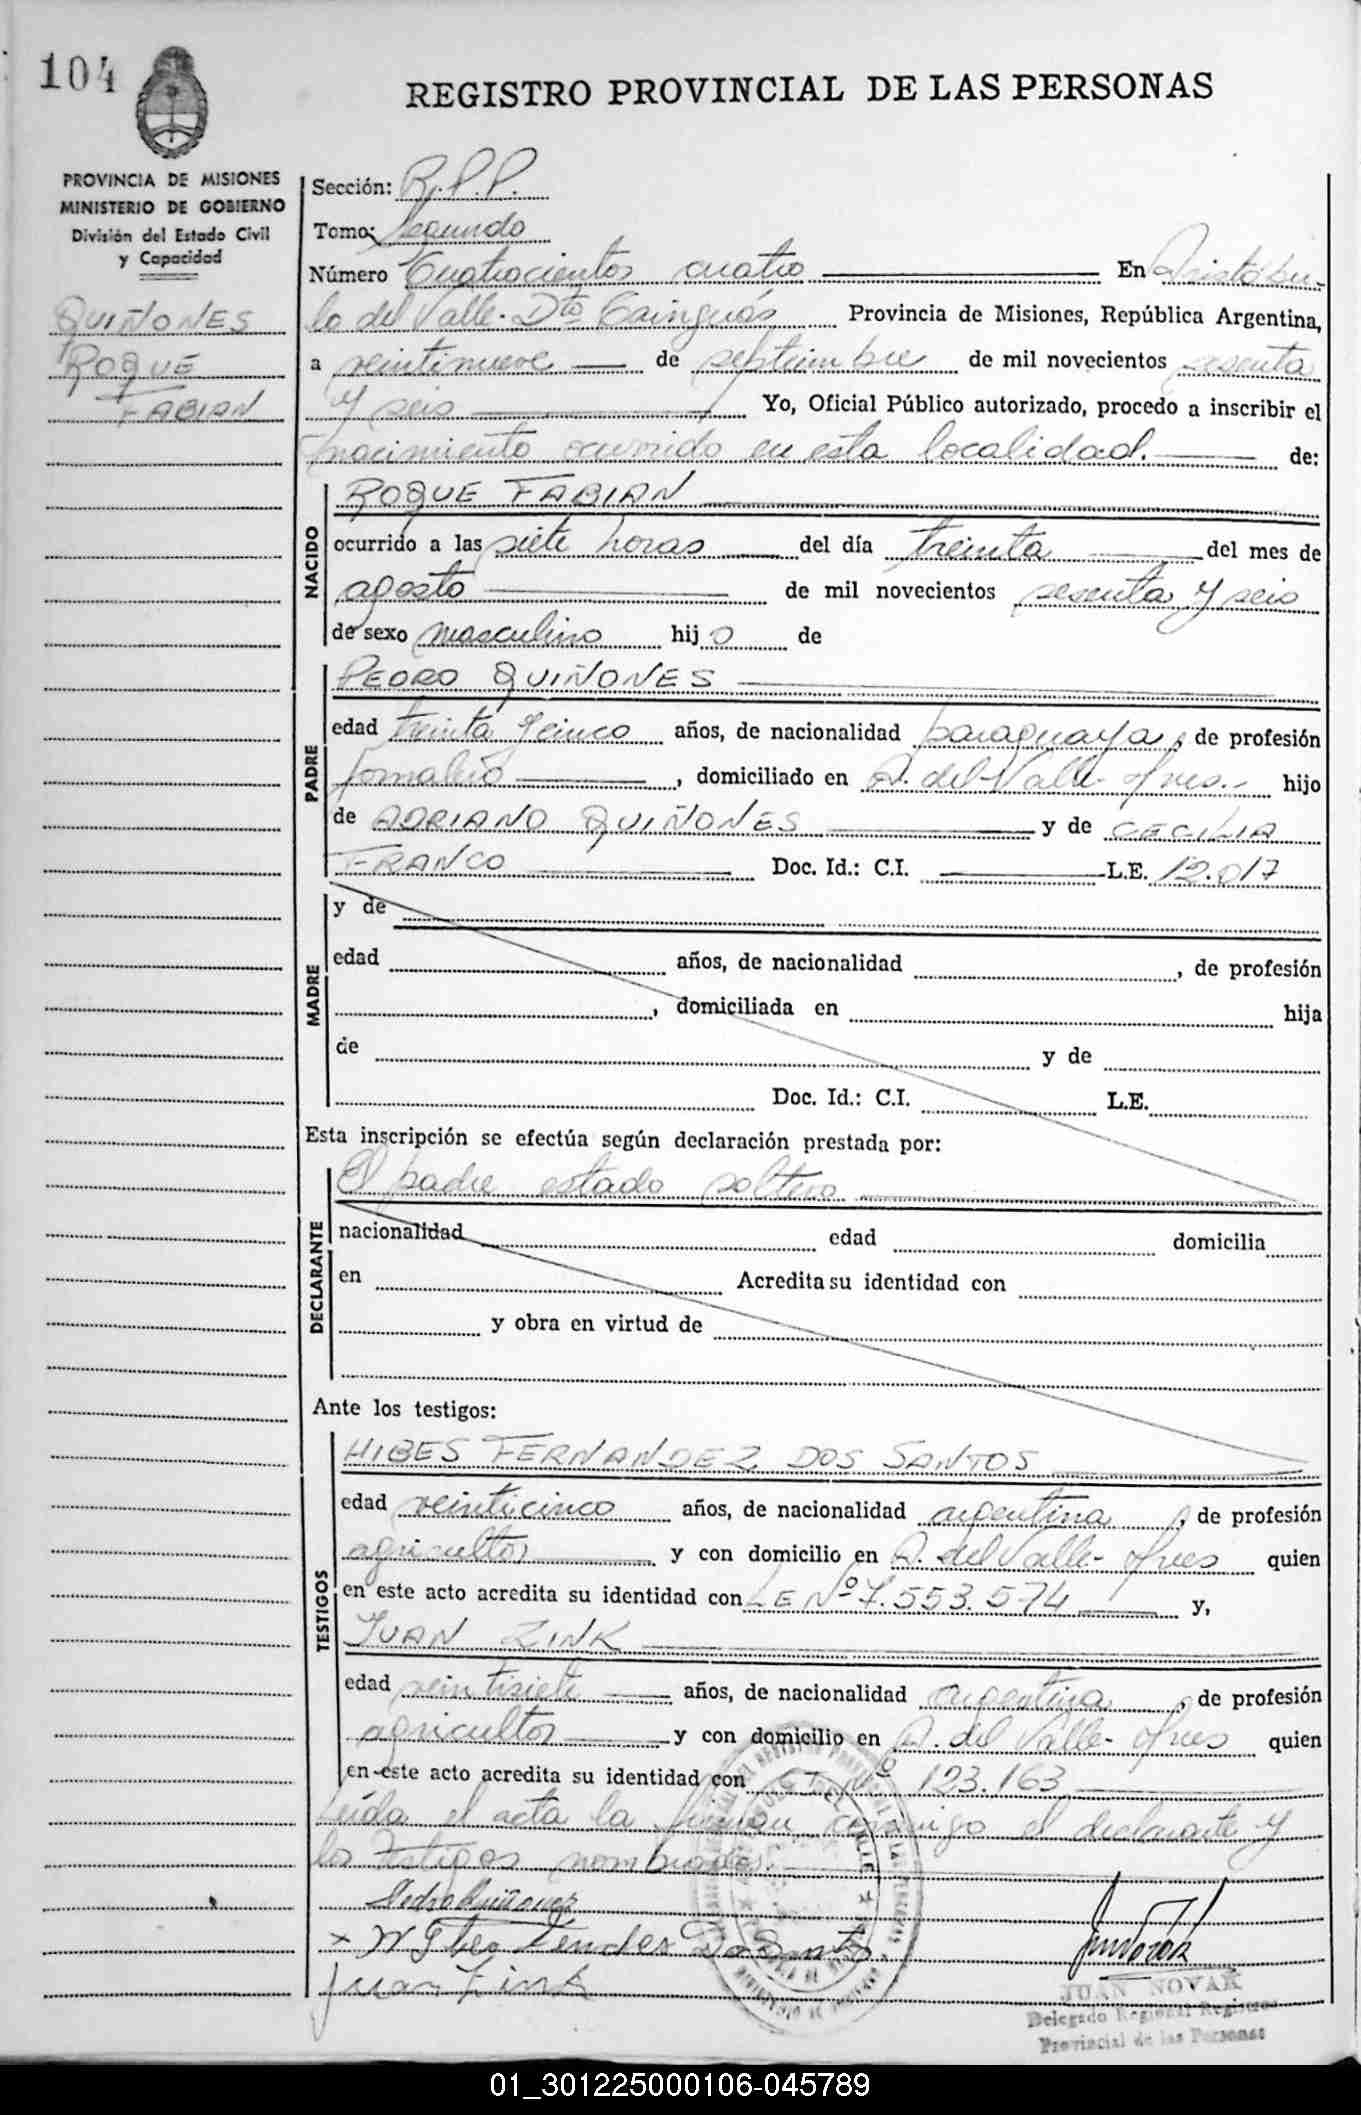 104
REGISTRO PROVINCIAL DE LAS PERSONAS
PROVINCIA DE MISIONES
MINISTERIO DE GOBIERNO
División del Estado Civil
y Capacidad
QUIÑONES
ROQUE
FABIAN
Sección: R.P.P.
Tomo: Segundo
Número Cuatrocientos cuatro En Aristóbu-
lo del Valle. Dto Cainguás Provincia de Misiones, República Argentina,
a veintinueve de septiembre de mil novecientos sesenta
y seis Yo, Oficial Público autorizado, procedo a inscribir el
nacimiento ocurrido en esta localidad. de:
NACIDO
ROQUE FABIAN
ocurrido a las siete horas del día treinta del mes de
agosto de mil novecientos sesenta y seis
de sexo masculino hijo de
PADRE
PEDRO QUIÑONES
edad treinta y cinco años, de nacionalidad paraguaya, de profesión
jornalero, domiciliado en A. del Valle- Mnes.- hijo
de ADRIANO QUIÑONES y de CECILIA
FRANCO Doc. Id.: C.I. L.E. 12.017
MADRE
y de
edad años, de nacionalidad , de profesión
, domiciliada en hija
de y de
Doc. Id.: C.I. L.E.
Esta inscripción se efectúa según declaración prestada por:
DECLARANTE
El padre estado soltero
nacionalidad edad domicilia
en Acredita su identidad con
y obra en virtud de
Ante los testigos:
TESTIGOS
HIBES FERNANDEZ DOS SANTOS
edad veinticinco años, de nacionalidad argentina, de profesión
agricultor y con domicilio en A. del Valle- Mnes quien
en este acto acredita su identidad con LE Nº 7.553.574 y,
JUAN ZINK
edad veintisiete años, de nacionalidad argentina, de profesión
agricultor y con domicilio en A. del Valle- Mnes quien
en este acto acredita su identidad con Nº 123.163
Leída el acta la firman conmigo el declarante y
los testigos nombrados.
Pedro Quiñonez
Juan Zink
JUAN NOVAK
Delegado Regional Registro
Provincial de las Personas
01_301225000106-045789